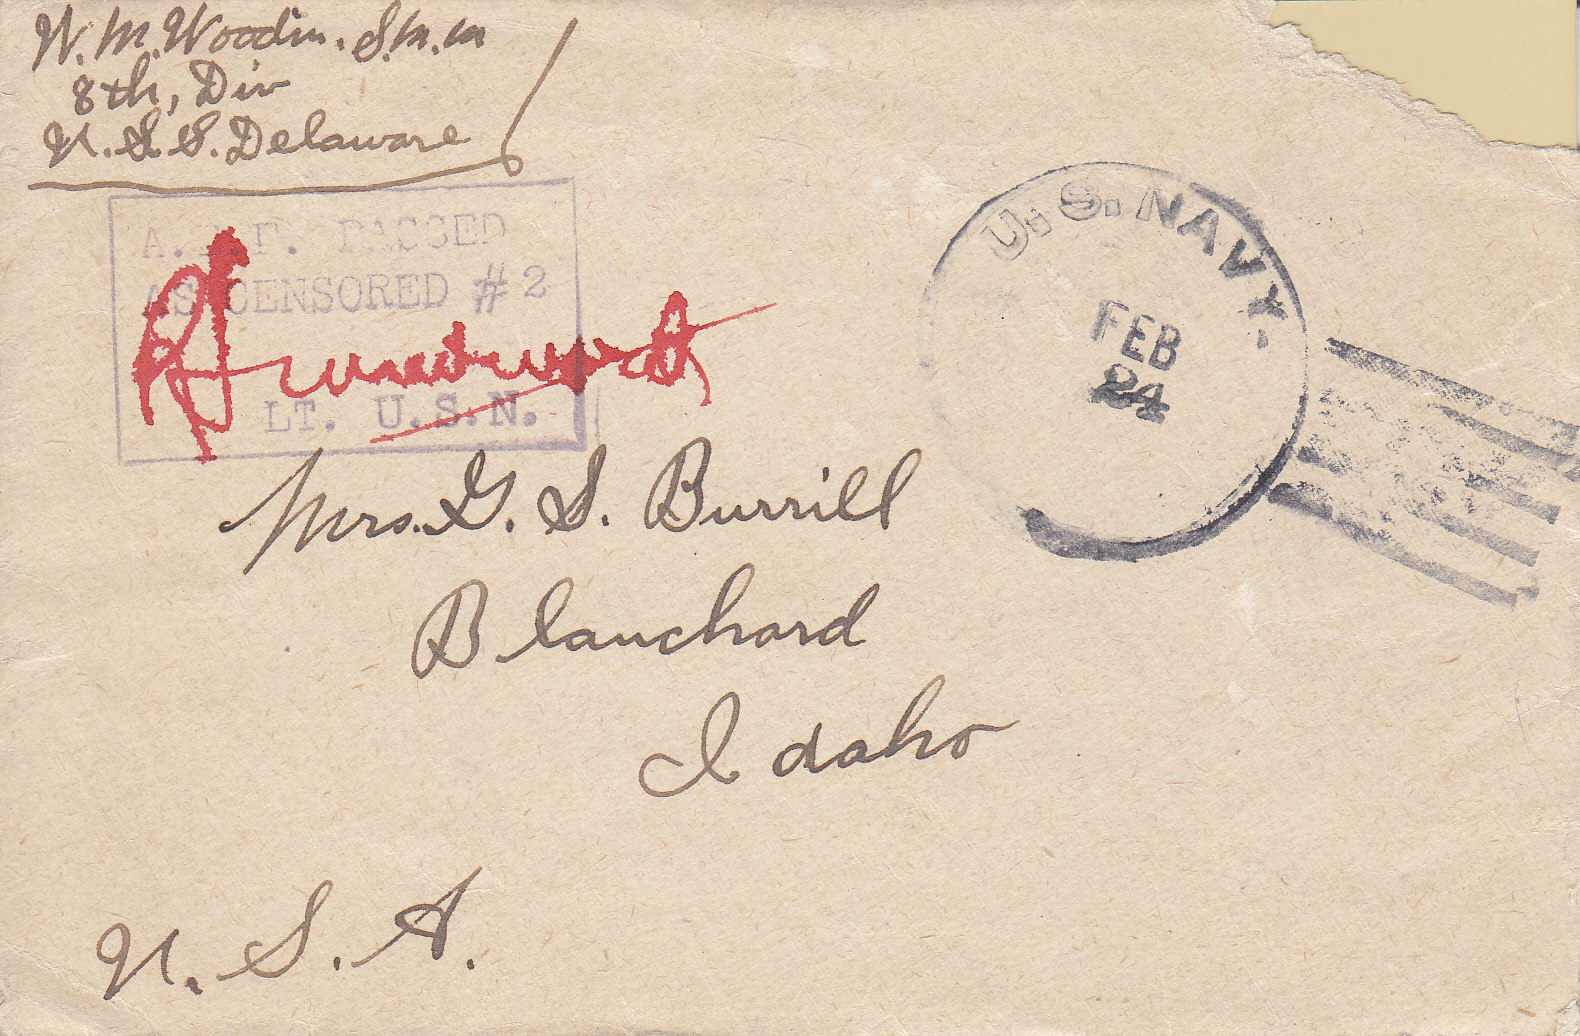 W. M. Woodin. S.M.M
8th, Div
U.S.S. Delaware
A.E.F. PASSED
AS CENSORED #2
LT. U.S.N.
U.S. NAVY.
FEB
24
Mrs. G. S. Burrill
Blanchard
Idaho
U.S.A.